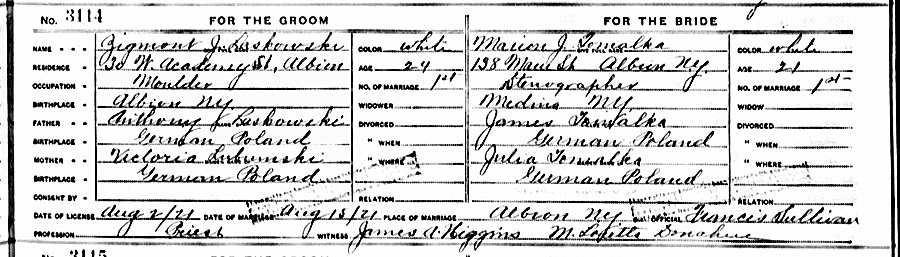 No. 3114 FOR THE GROOM FOR THE BRIDE
NAME Zigmont J. Laskowski COLOR white Marion J. Tomalka COLOR white
RESIDENCE 30 W. Academy St, Albion AGE 24 138 Main St Albion Ny. AGE 21
OCCUPATION Moulder NO. OF MARRIAGE 1st Stenographer NO. OF MARRIAGE 1st
BIRTHPLACE Albion Ny WIDOWER Medina NY WIDOW
FATHER Anthony J. Laskowski DIVORCED James Tomalka DIVORCED
BIRTHPLACE German Poland " WHEN German Poland " WHEN
MOTHER Victoria " WHERE Julia " WHERE
BIRTHPLACE German Poland German Poland
CONSENT BY RELATION RELATION
DATE OF LICENSE Aug 2/21 DATE OF MARRIAGE Aug 15/21 PLACE OF MARRIAGE Albion Ny OFFICIAL Francis Sullivan
PROFESSION Priest WITNESS James A. Higgins M. Loretta Donahue
No. 3115 FOR THE GROOM